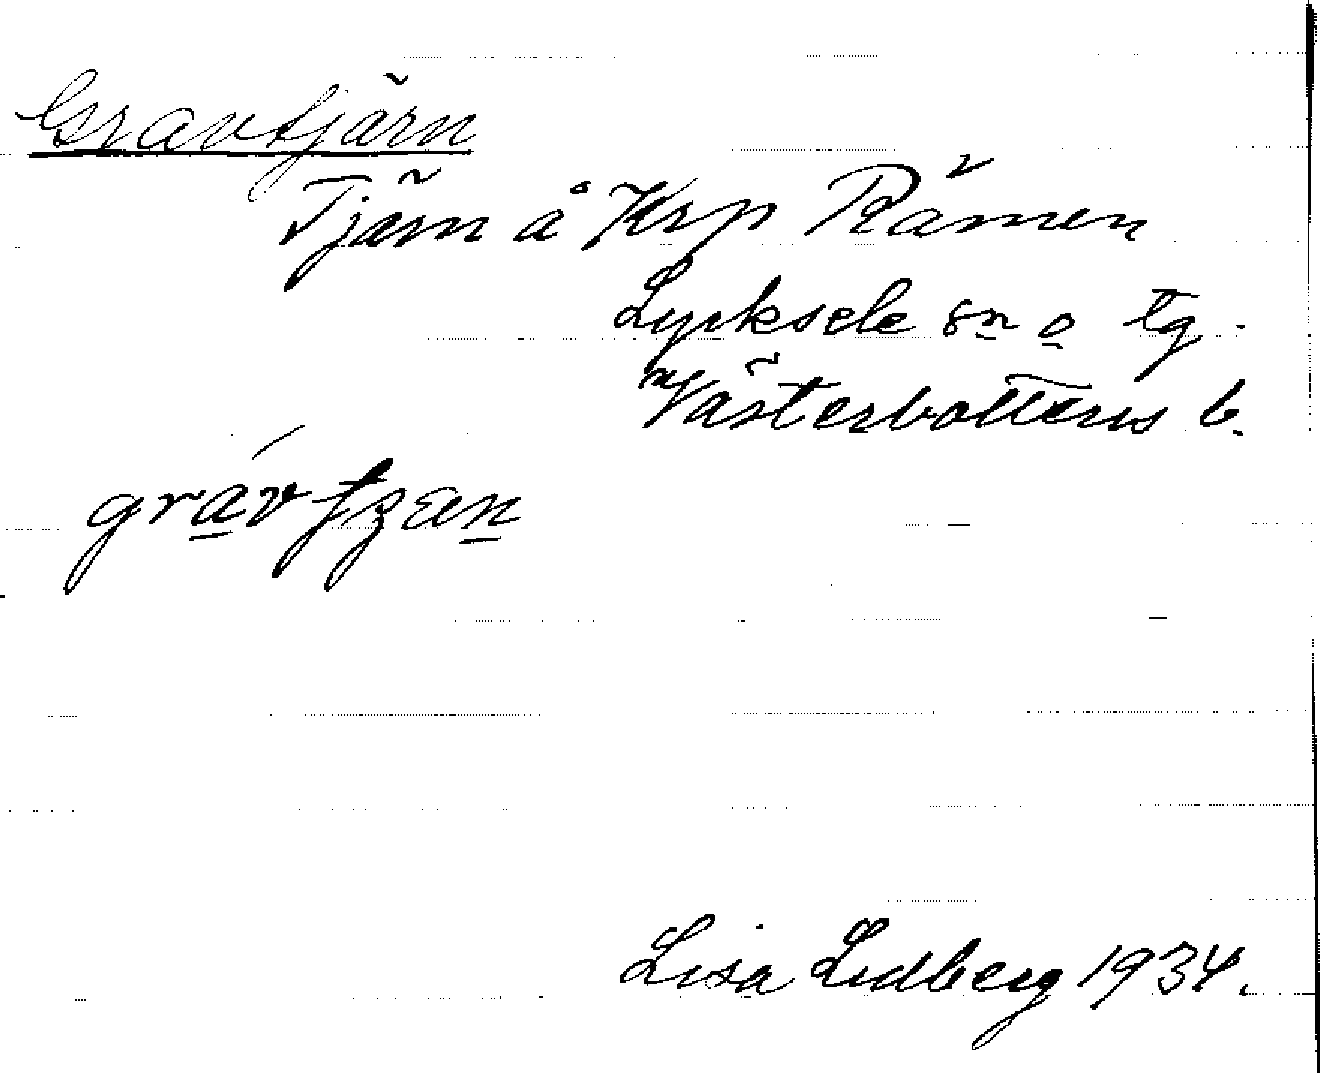 Gravtjärn
Tjärn å Krp Råmen
Lycksele sn o tg.
Västerbottens l.
grávtjæn
Lisa Lidberg 1934.